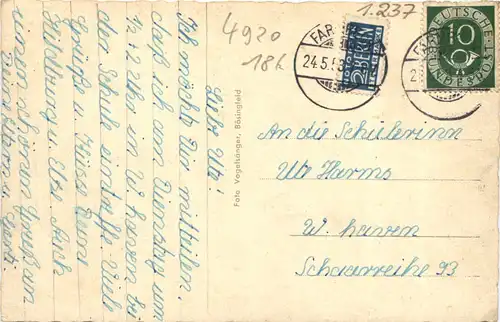 4920
18h
1.237
FAR
24.5.5
2 BERLIN
NOTOPFER
STEUERMARKE
10
DEUTSCHE
BUNDESPOST
Lieb Ute!
Ich möchte Dir mitteilen,
daß ich am Dienstag um
12 42 Uhr in W. haven bei
der Schule eintreffe. Viele
Grüße u. Küsse Dein
u. Elte Auch
einen schönen Gruß an
Deine Eltern u.
Gerti.
Foto Vogelsänger, Bösingfeld
An die Schülerinn
Ute Harms
W. haven
Schaarreihe 93